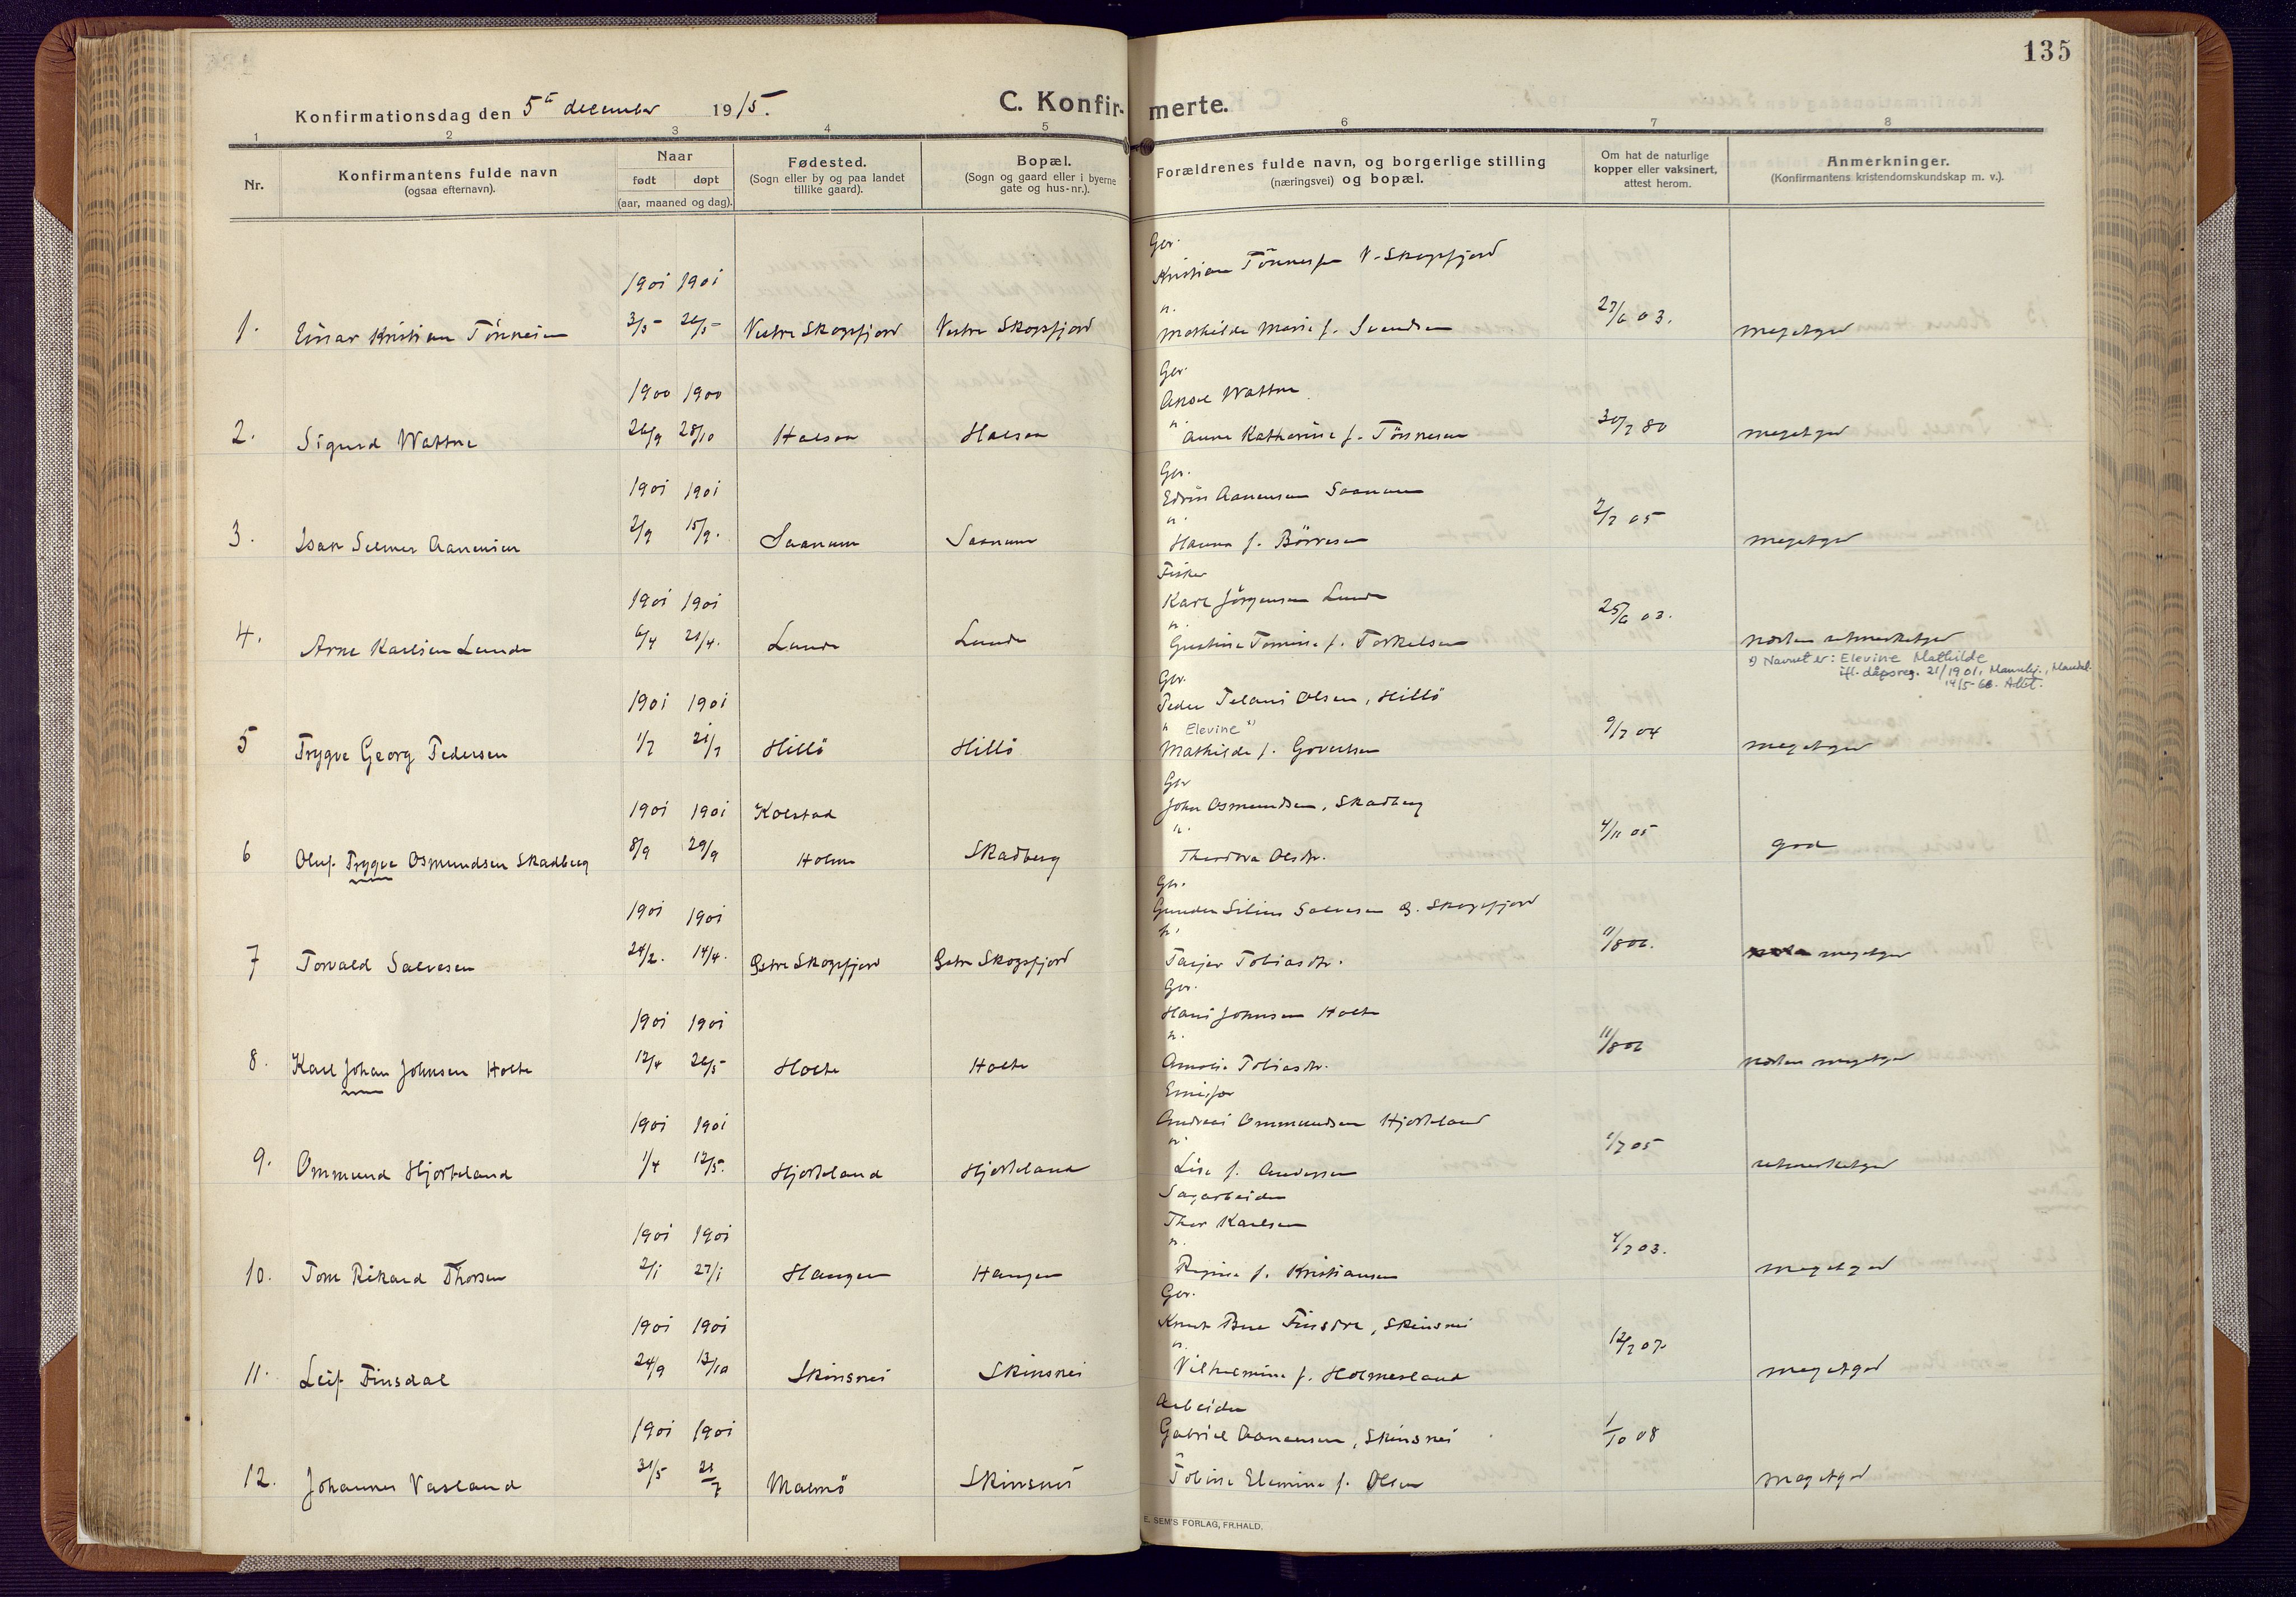 135
Konfirmationsdag den 5te december 1915.
C. Konfir-merte.
1 2 3 4 5 6 7 8
Nr.
Konfirmantens fulde navn
(ogsaa efternavn).
Naar
født døpt
(aar, maaned og dag).
Fødested.
(Sogn eller by og paa landet
tillike gaard).
Bopæl.
(Sogn og gaard eller i byerne
gate og hus-nr.).
Forældrenes fulde navn, og borgerlige stilling
(næringsvei) og bopæl.
Om hat de naturlige
kopper eller vaksinert,
attest herom.
Anmerkninger.
(Konfirmantens kristendomskundskap m. v.).
Gbr.
Kristian Tönnessen V-Skogsfjord
1901 1901
h.
1. Einar Kristian Tönnesen 3/5 26/5 Vestre Skogsfjord Vestre Skogsfjord Mathilde Marie f. Svendsen 27/6 03. megetgod
Gbr.
1900 1900
Aksel Wattne
2. Sigurd Wattne 26/9 28/10 Halsen Halsen Anne Katherine f. Tönnesen 30/7 80 megetgod
Gbr.
1901 1901 Edvin Aanensen Saanum
3. Isak Selmer Aanensen 2/9 15/9. Saanum Saanum Hanna f. Börresen 2/7 05 megetgod
Fisker
1901 1901 Karl Jörgensen Lunde
4. Arne Karlsen Lunde 6/4 21/4. Lunde Lunde Gustine Tomine f. Torkelsen 25/6 03. næsten utmerketgod
x) Navnet er: Elevine Mathilde
ifl. dåpsreg. 21/1901, Mannskj., Mandal.
14/5-66. Attst.
Gbr.
1901 1901 Peder Telani Olsen, Hillö
" Elevine x)
5 Trygve Georg Pedersen 1/7 21/7 Hillö Hillö Mathilde f. Govertsen 9/7 04 megetgod
Gbr
1901 1901 Kolstad John Osmundsen, Skadberg
6 Oluf Trygve Osmundsen Skadberg 8/9 29/9 Holum Skadberg Theodora Olsdtr. 4/11 05 god
Gbr.
1901 1901 Gunder Silius Salvesen Ø. Skogsfjord
7 Torvald Salvesen 24/2. 14/4. Østre Skogsfjord Østre Skogsfjord Tarjer Tobiasdtr. 11/8 06. megetgod
Gbr.
1901 1901 Hans Johnsen Holte
h.
8. Karl Johan Johnsen Holte 12/4 26/5 Holte Holte Amalie Tobiasdtr. 11/8 06 næsten megetgod
Emissær
1901 1901 Andreas Ommundsen Hjorteland
9. Ommund Hjorteland 1/4 12/5. Hjorteland Hjorteland Lise f. Andersen 1/7 05 utmerketgod
Sagarbeider
1901 1901 Thor Karlsen
h.
10. Tom Rikard Thorsen 2/1 27/1 Haugen Haugen Regine f. Kristiansen 4/7 03. megetgod
Gbr.
1901 1901 Knut Bue Finsdal, Skinsnes
h.
11. Leif Finsdal 24/9 13/10 Skinsnes Skinsnes Vilhelmine f. Holmesland 12/7 07 megetgod
Arbeider
1901 1901 Gabriel Aanensen, Skinsnes
12. Johannes Vasland 31/5 21/7 Malmö Skinsnes Tobine Elamine f. Olsen 1/10 08 megetgod
E. SEM'S FORLAG, FR.HALD.